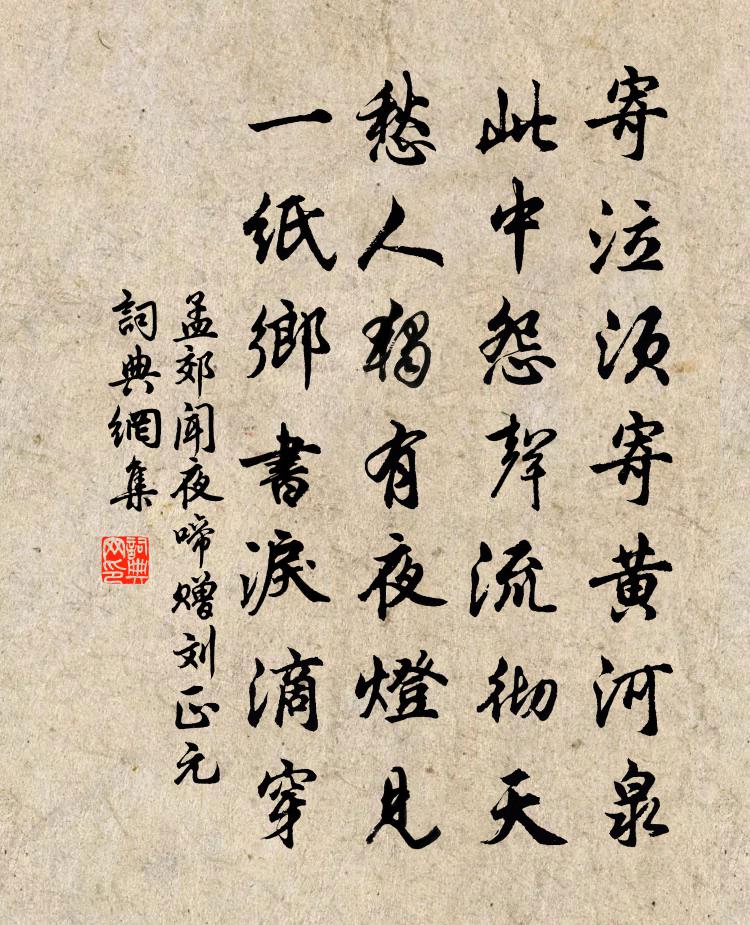 寄泣須寄黃河泉
此中怨聲流徹天
愁人獨有夜燈見
一紙鄉書淚滴穿
孟郊聞夜啼贈刘正元
詞典網集
詞典网印